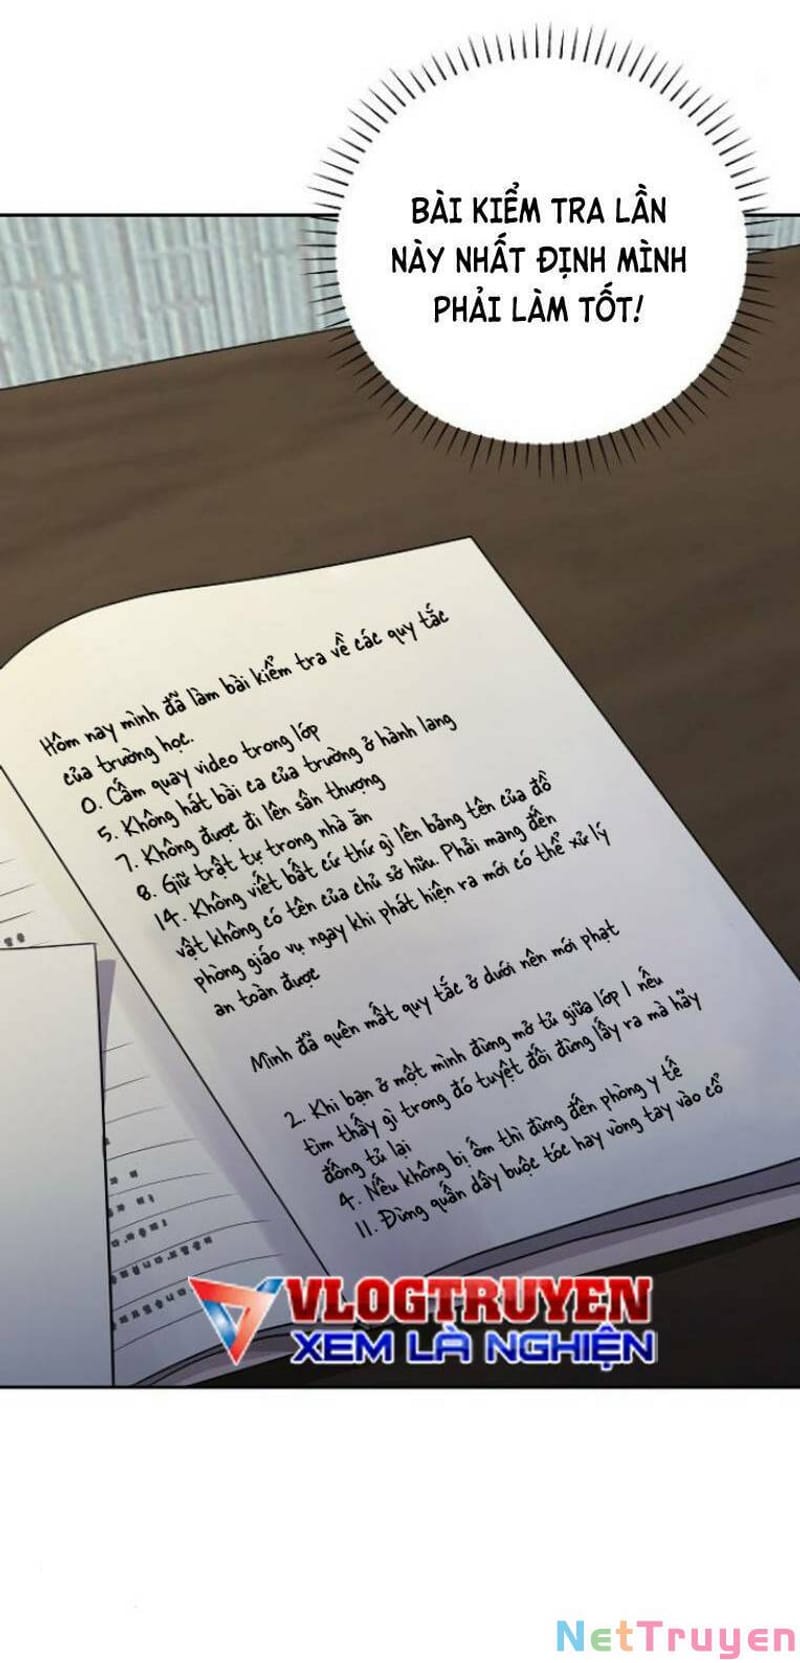 BÀI KIỂM TRA LẦN
NÀY NHẤT ĐỊNH MÌNH
PHẢI LÀM TỐT!
Hôm nay mình đã làm bài kiểm tra về các quy tắc
của trường học.
0. Cấm quay video trong lớp
5. Không hát bài ca của trường ở hành lang
7. Không được đi lên sân thượng
8. Giữ trật tự trong nhà ăn
14. Không viết bất cứ thứ gì lên bảng tên của đồ
vật không có tên của chủ sở hữu. Phải mang đến
phòng giáo vụ ngay khi phát hiện ra mới có thể xử lý
an toàn được
Mình đã quên mất quy tắc ở dưới nên mới phạt
2. Khi bạn ở một mình đừng mở tủ giữa lớp 1 nếu
tìm thấy gì trong đó tuyệt đối đừng lấy ra mà hãy
đóng tủ lại
4. Nếu không bị ốm thì đừng đến phòng y tế
11. Đừng quấn dây buộc tóc hay vòng tay vào cổ
VLOGTRUYEN
XEM LÀ NGHIỆN
NetTruyen